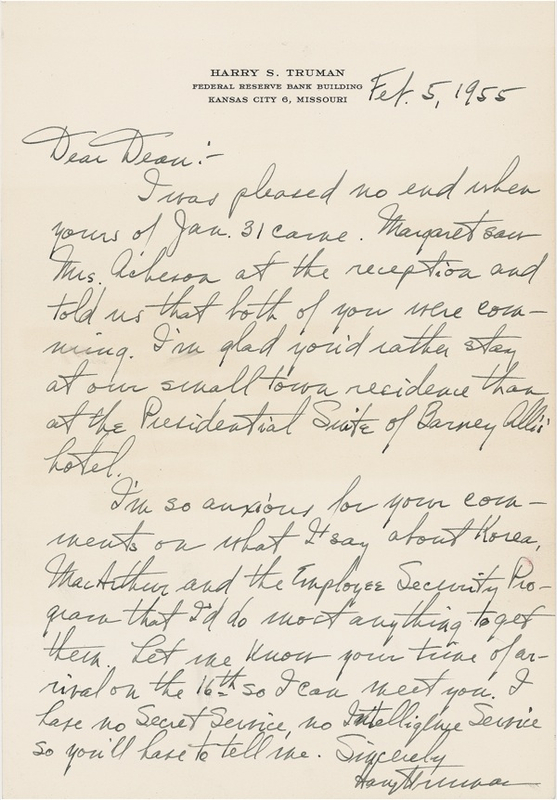 HARRY S. TRUMAN
FEDERAL RESERVE BANK BUILDING
KANSAS CITY 6, MISSOURI
Feb. 5, 1955
Dear Dean:-
I was pleased no end when
yours of Jan. 31 came. Margaret saw
Mrs. Acheson at the reception and
told us that both of you were com-
ming. I'm glad you'd rather stay
at our small town residence than
at the Presidential Suite of Barney Allis'
hotel.
I'm so anxious for your com-
ments on what I say about Korea,
MacArthur and the Employee Security Pro-
gram that I'd do most anything to get
them. Let me know your time of ar-
rival on the 16th so I can meet you. I
have no Secret Service, no Intelligence Service
so you'll have to tell me. Sincerely
Harry Truman